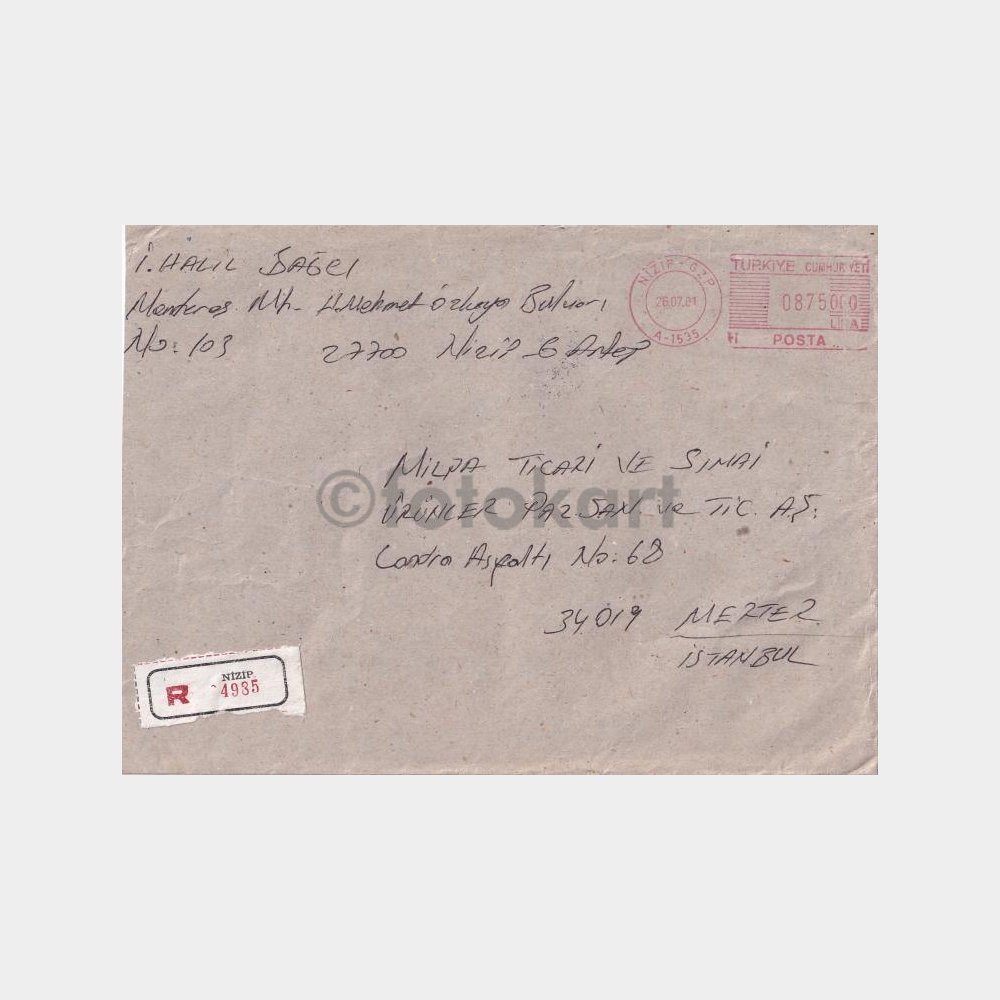 İ. HALİL BAĞCI
Menderes Mh. H.Mehmet Özkaya Bulvarı
No: 103 27700 Nizip G Antep
NİZİP - GZP
26.07.01
A-1535
TÜRKİYE CUMHURİYETİ
0875000
LİRA
POSTA
MİLPA TİCARİ VE SINAİ
ÜRÜNLER PAZ. SAN. ve TİC. A.Ş.
©fotokart
Londra Asfaltı No: 68
34019 MERTER
İSTANBUL
NİZİP
R 4935